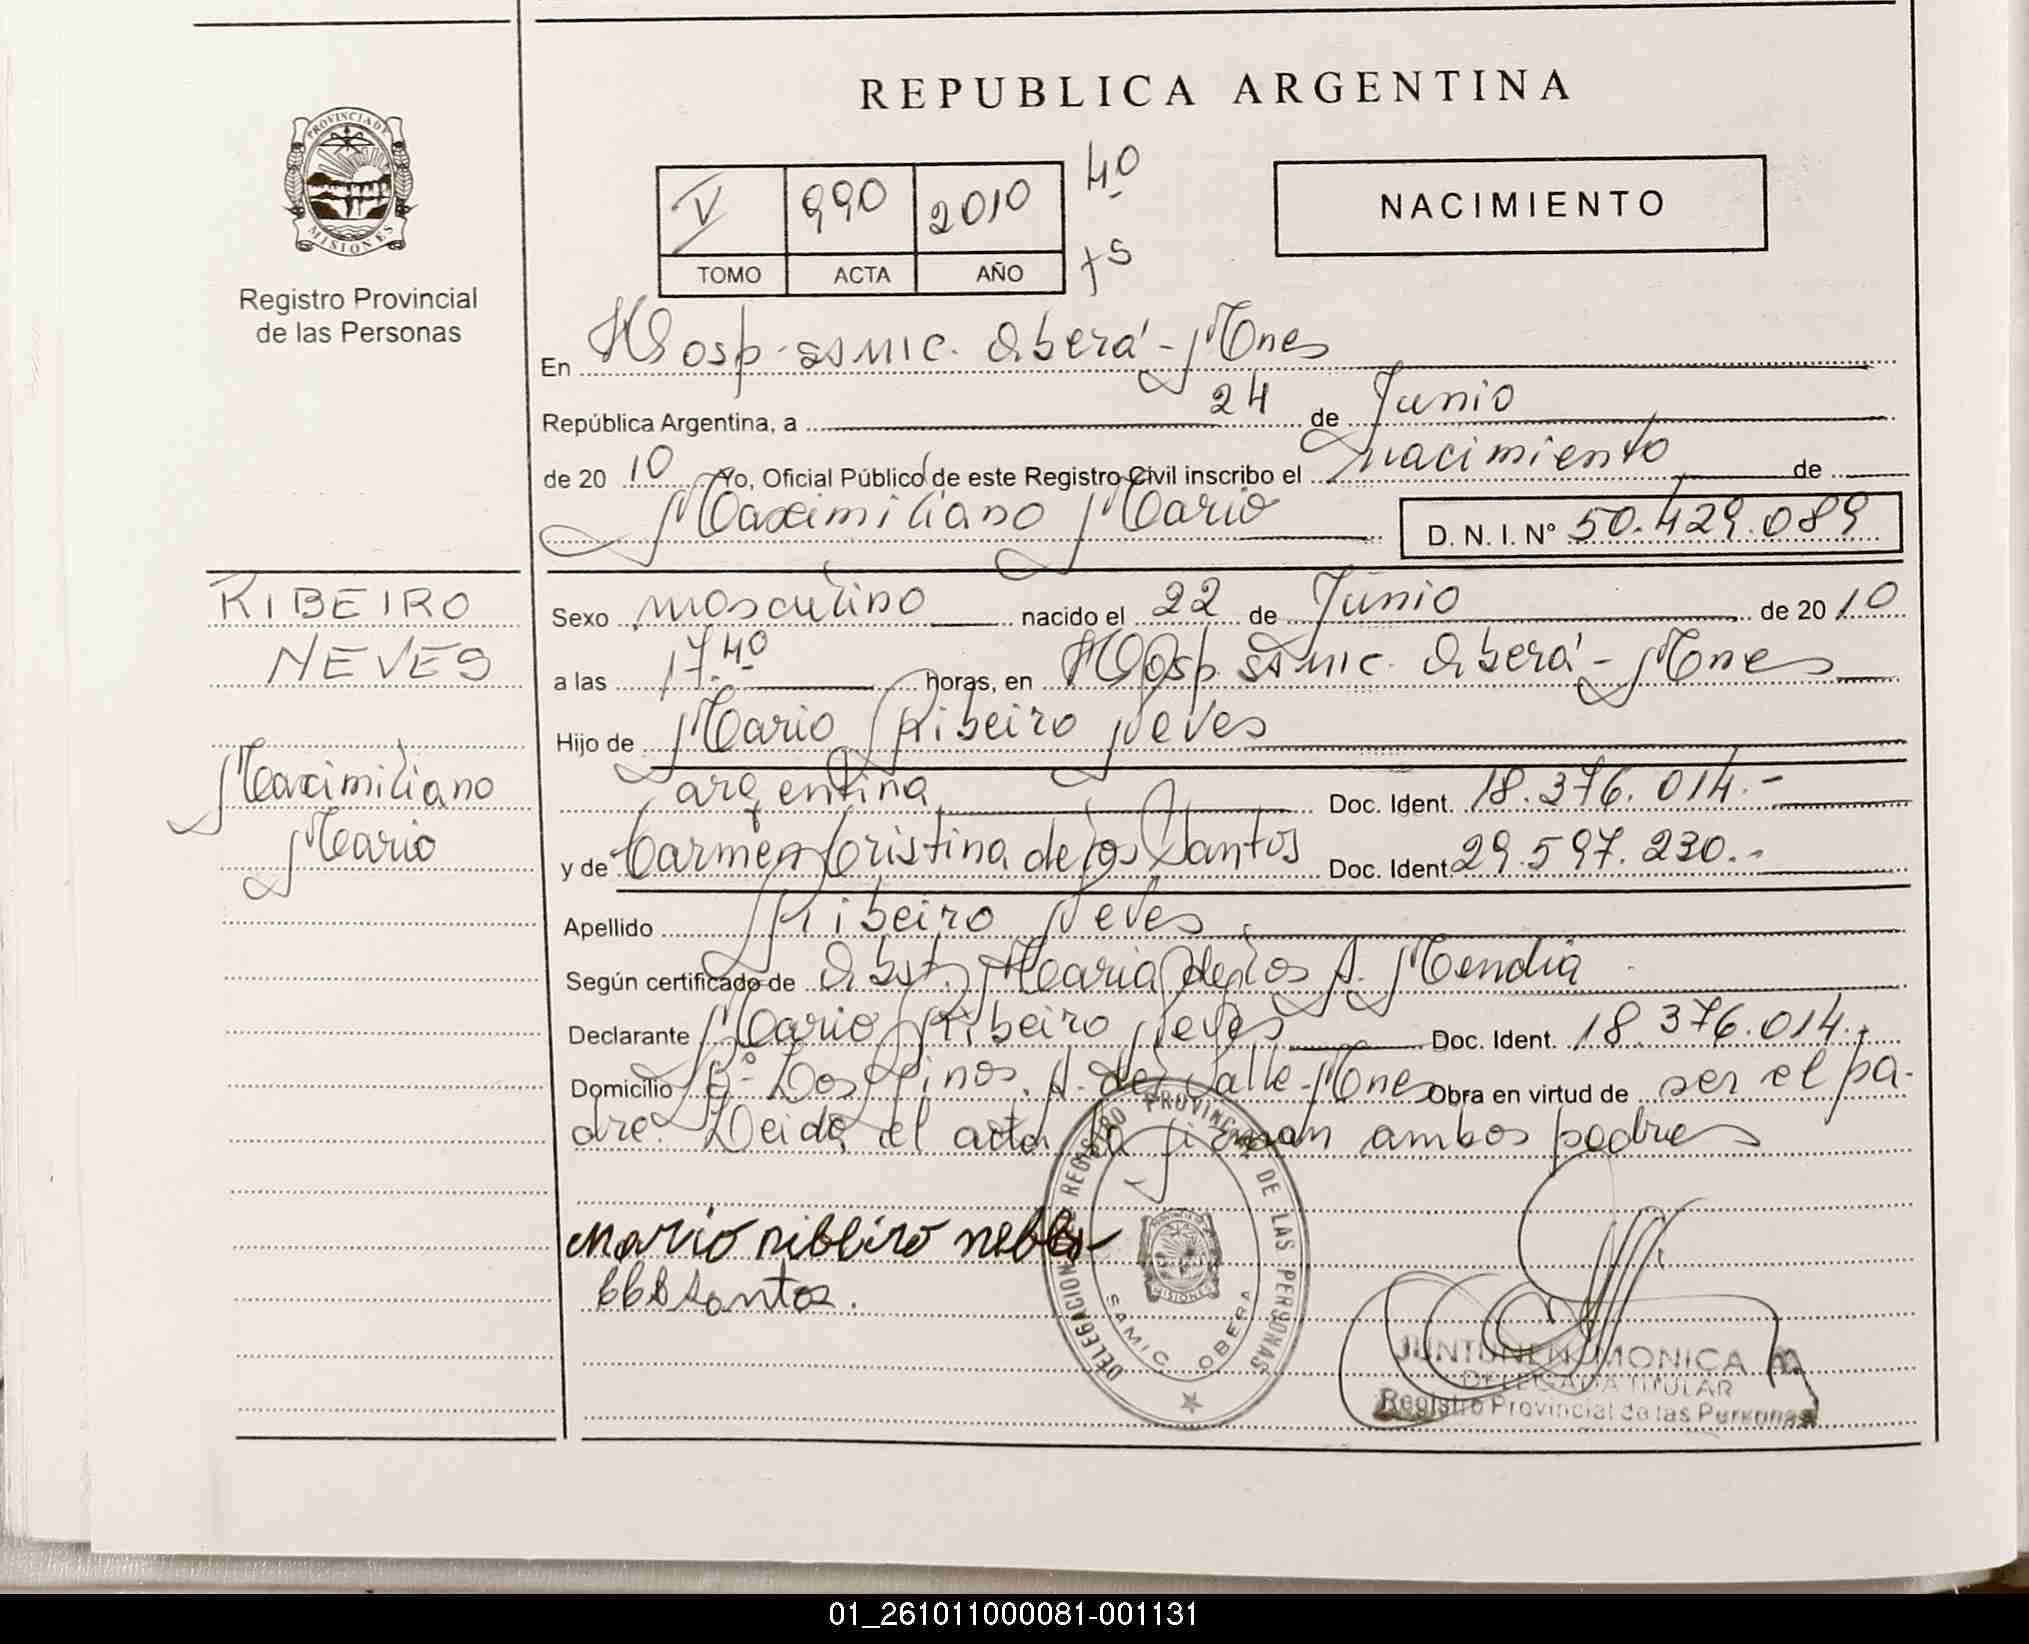 REPUBLICA ARGENTINA
PROVINCIA DE
MISIONES
Registro Provincial
de las Personas
V 990 2010 40
TOMO ACTA AÑO
NACIMIENTO
En Hosp. samic. Oberá - Mnes
República Argentina, a 24 de Junio
de 20 10 Yo, Oficial Público de este Registro Civil inscribo el nacimiento de
Maximiliano Mario D. N. I. Nº 50.429.089
RIBEIRO
NEVES
Maximiliano
Mario
Sexo masculino nacido el 22 de Junio de 20 10
a las 17.40 horas, en Hosp. samic. Oberá - Mnes
Hijo de Mario Ribeiro Neves
argentina Doc. Ident. 18.376.014.-
y de Carmen Cristina de los Santos Doc. Ident. 29.597.230.-
Apellido Ribeiro Neves.
Según certificado de Obst. Maria de los A. Mendia
Declarante Mario Ribeiro Neves Doc. Ident. 18.376.014.-
Domicilio Bº Dos Pinos. A. del Valle - Mnes Obra en virtud de ser el pa-
dre. Leida el acta la firman ambos padres
Mario ribeiro nebes
CCDSantos.
DELEGACION REGISTRO PROVINCIAL DE LAS PERSONAS
SAMIC OBERA
JUNTUNEN MONICA
DELEGADA TITULAR
Registro Provincial de las Personas
01_261011000081-001131